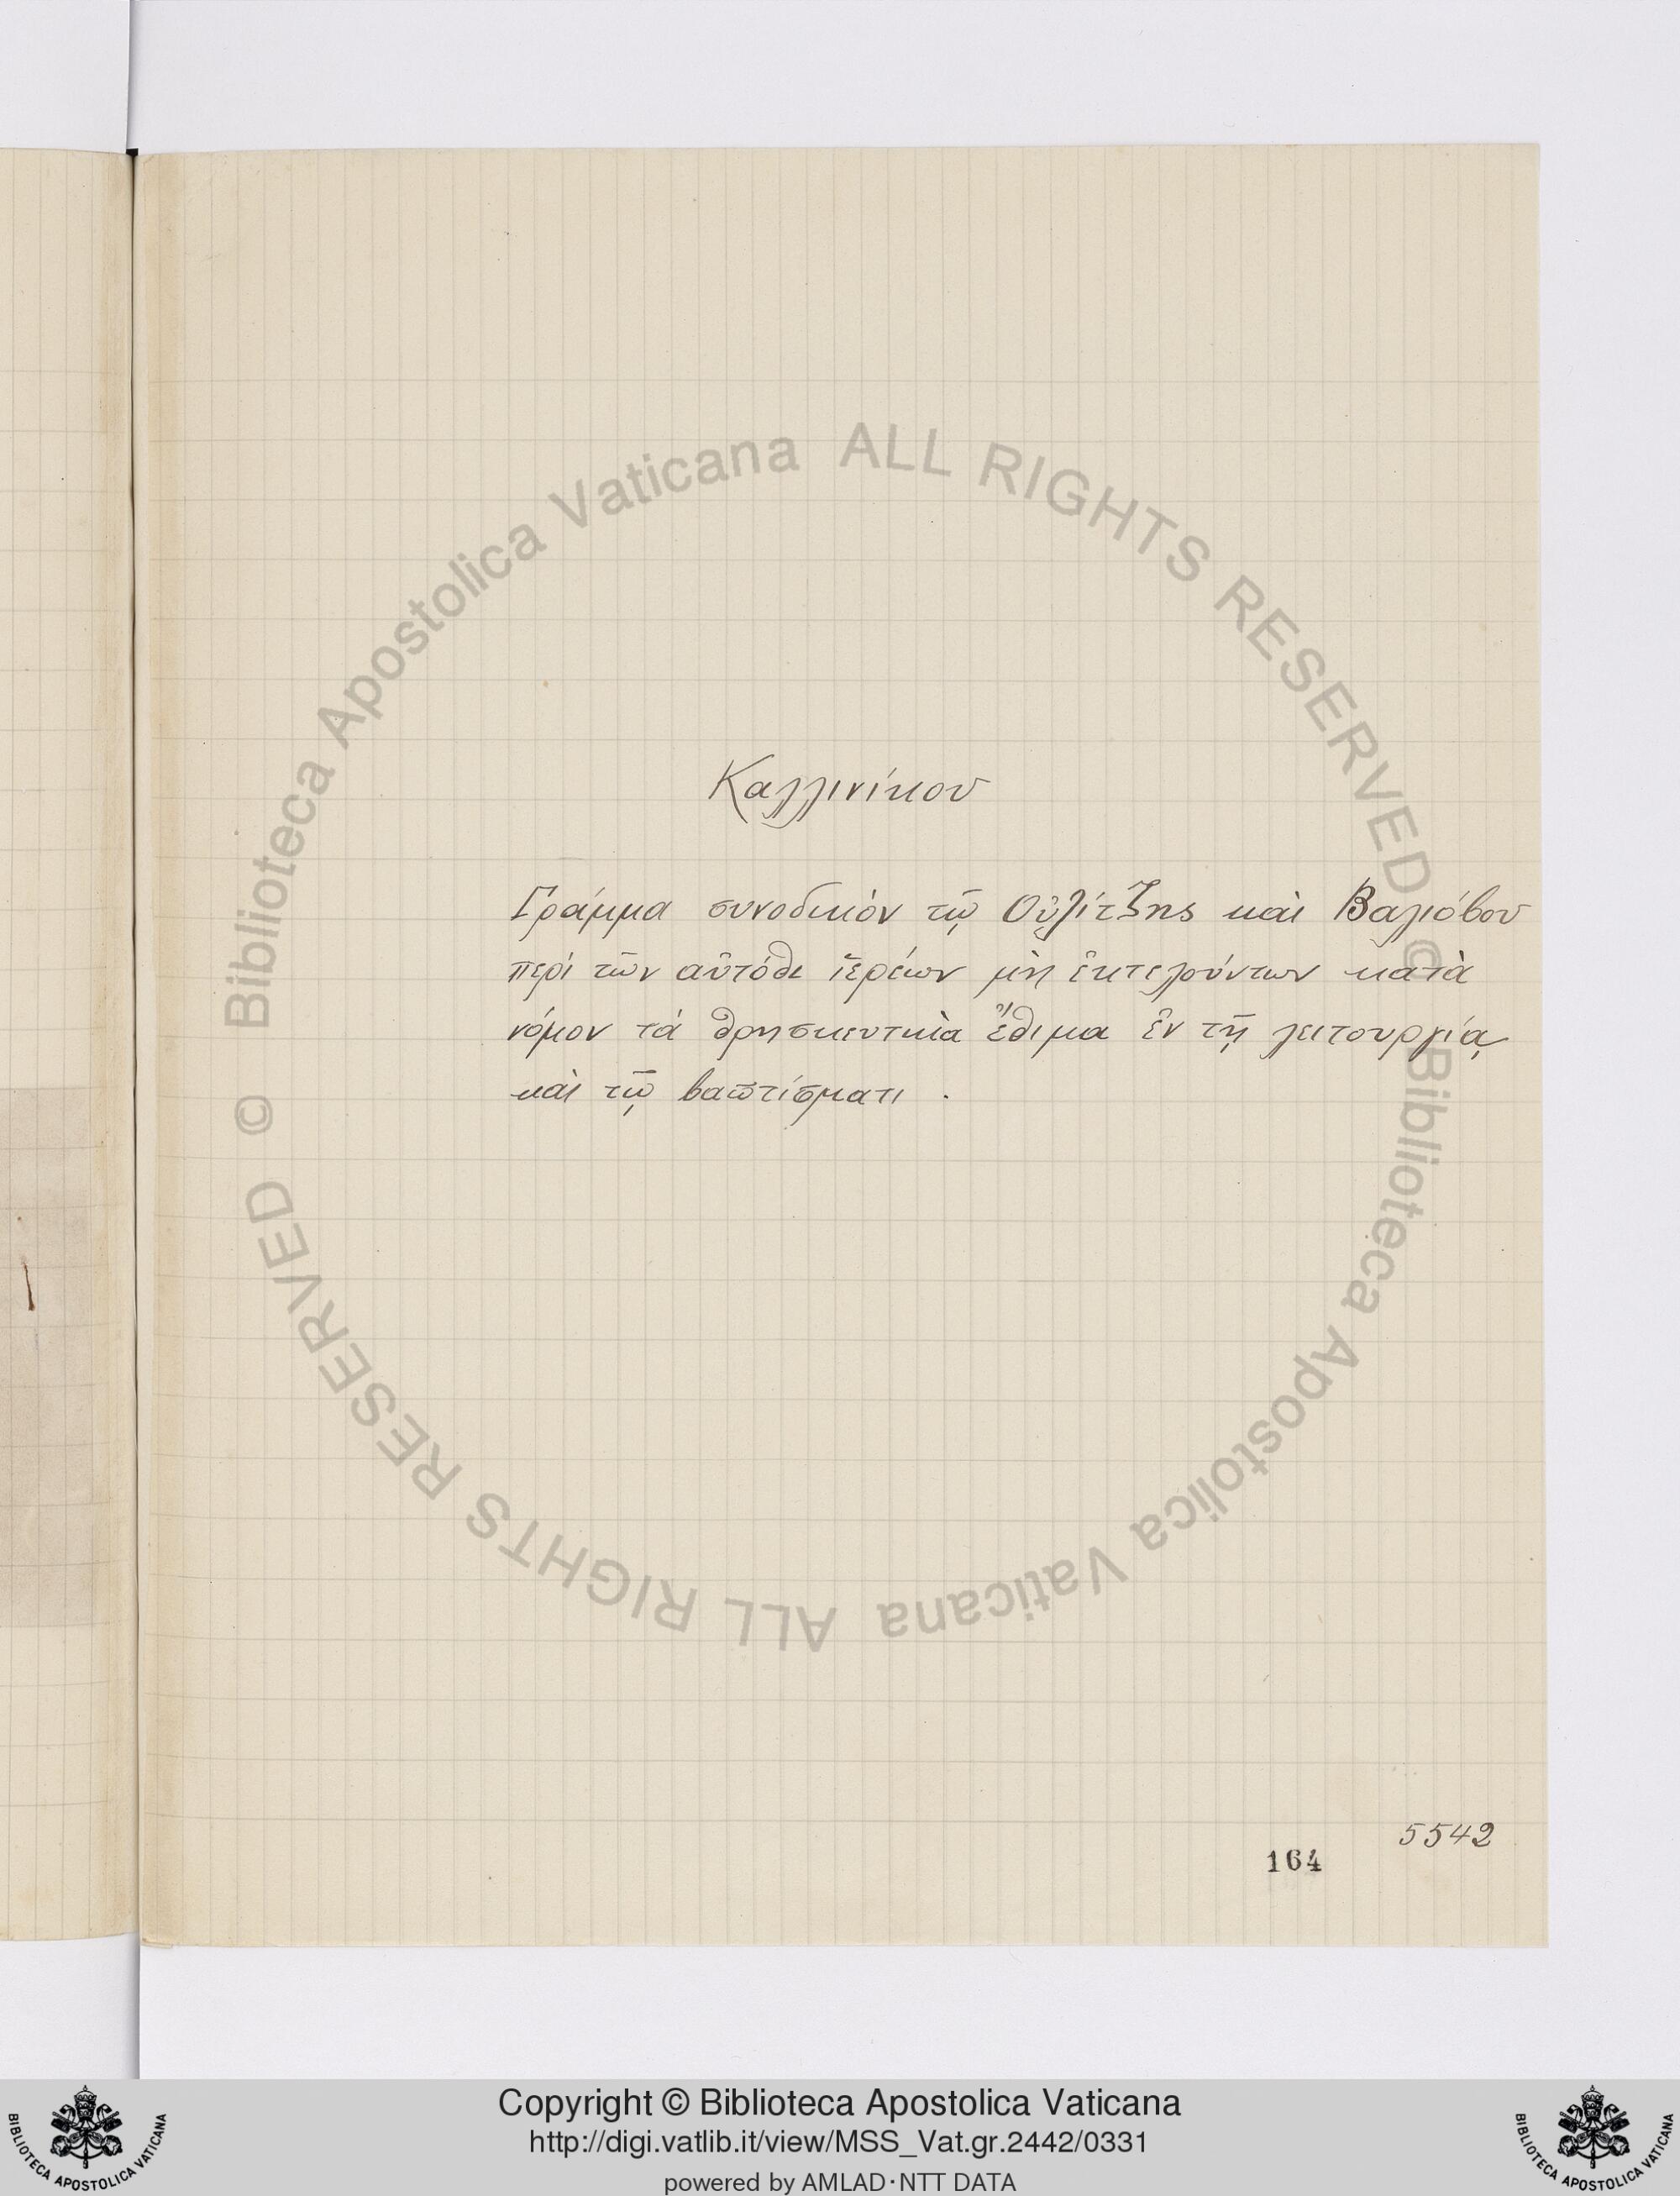 Καλλινίκου
Γράμμα συνοδικὸν τῷ Οὐλίτζης καὶ Βαλιόβου
περὶ τῶν αὐτόθι ἱερέων μὴ ἐκτελούντων κατὰ
νόμον τὰ θρησκευτικὰ ἔθιμα ἐν τῇ λειτουργίᾳ
καὶ τῷ βαπτίσματι .
5542
164
© Biblioteca Apostolica Vaticana ALL RIGHTS RESERVED
© Biblioteca Apostolica Vaticana ALL RIGHTS RESERVED
Copyright © Biblioteca Apostolica Vaticana
http://digi.vatlib.it/view/MSS_Vat.gr.2442/0331
powered by AMLAD·NTT DATA
BIBLIOTECA APOSTOLICA VATICANA
BIBLIOTECA APOSTOLICA VATICANA